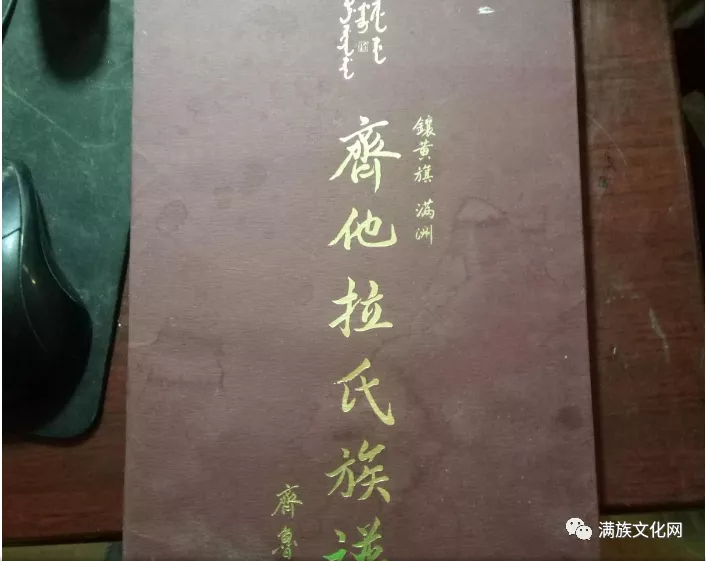 鑲黃旗 滿洲
齊他拉氏族譜
齊魯
满族文化网